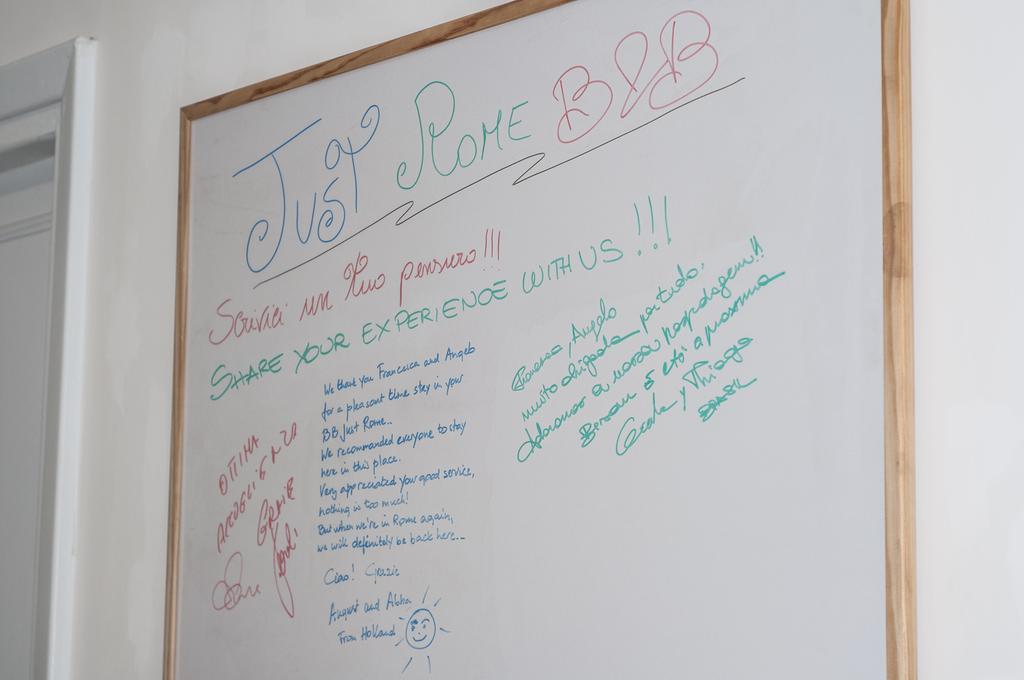 JUST ROME B&B
Scrivici un tuo pensiero!!!
SHARE YOUR EXPERIENCE WITH US!!!
OTTIMA
ACCOGLIENZA
GRAZIE
We thank you Francesca and Angelo
for a pleasant time stay in your
BB Just Rome...
We recommanded everyone to stay
here in this place.
Very appreciated your good service,
nothing is too much!
But when we're in Rome again,
we will definitely be back here...
Ciao! Grazie
August and
From Holland
, Angelo
muito obrigada por tudo.
Adoramos a nossa hospedagem!!
e até a próxima
y Thiago
BRASIL